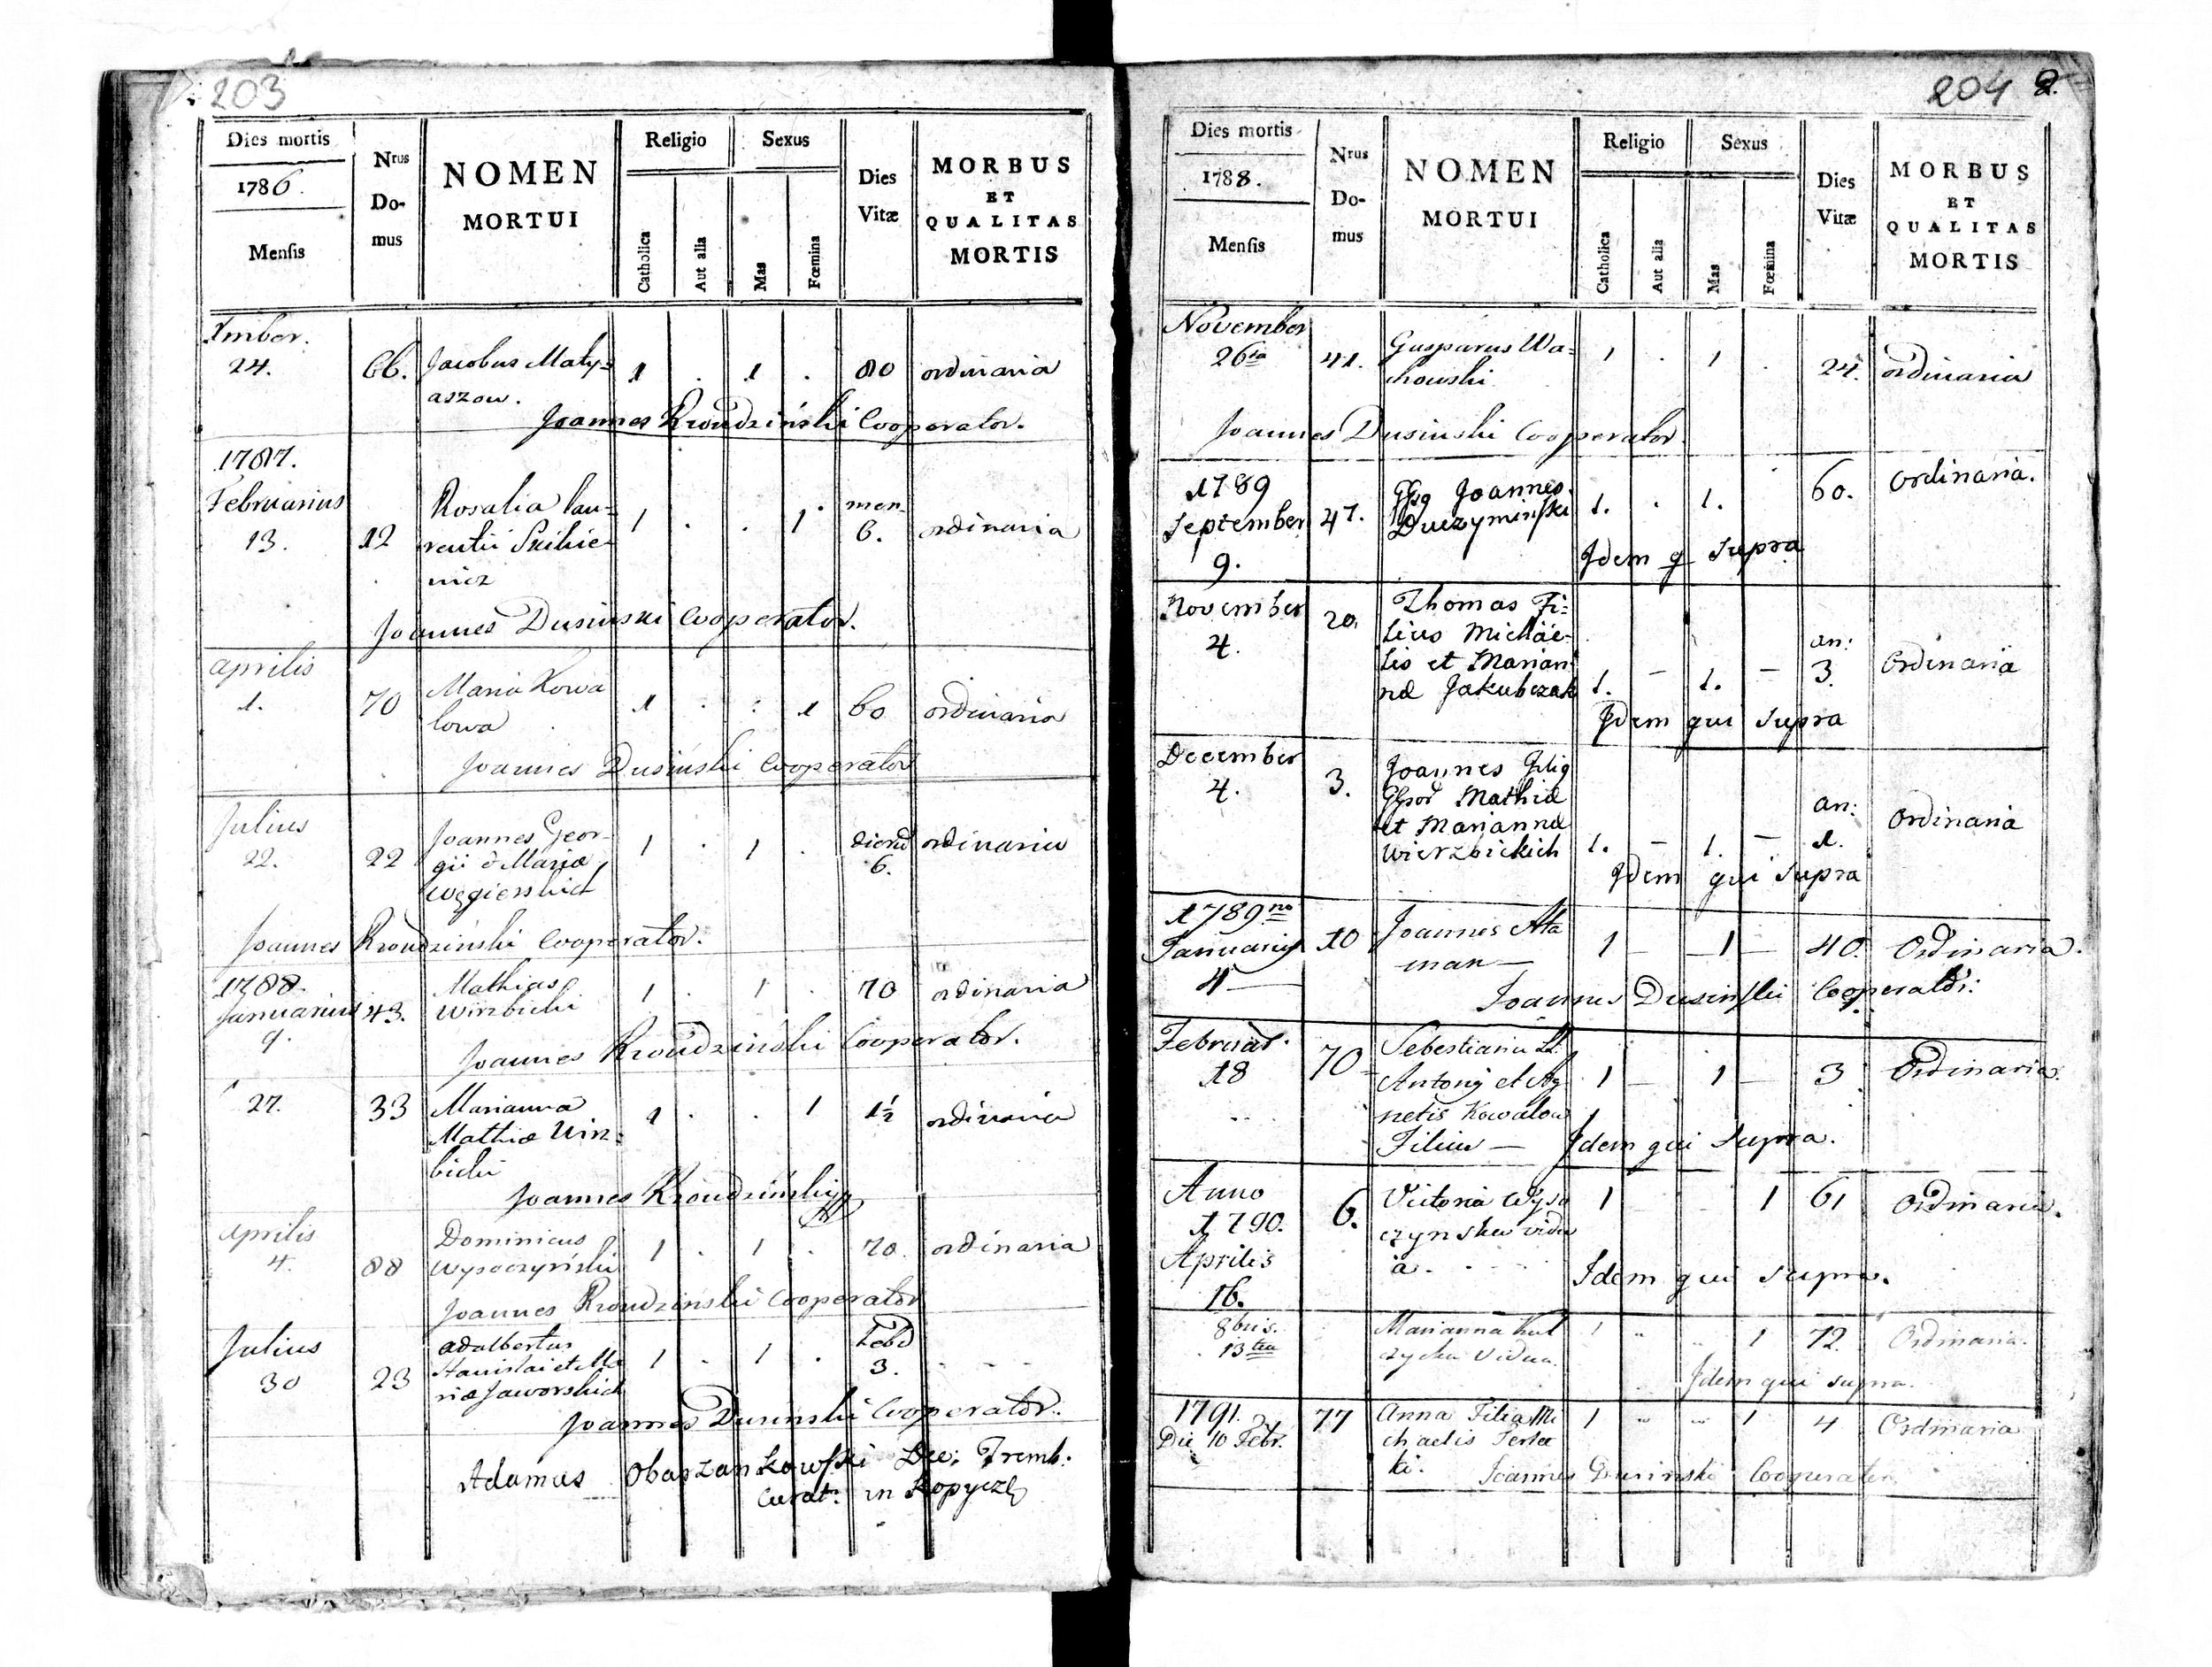 203
Dies mortis
1786.
Mensis
Nrus
Do-
mus
NOMEN
MORTUI
Religio
Catholica
Aut alia
Sexus
Mas
Fœmina
Dies
Vitæ
MORBUS
ET
QUALITAS
MORTIS
Xmber.
24. 66. Jacobus Maty= 1 . 1 . 80 ordinaria
aszow.
Joannes Kroudziński Cooperator.
1787.
Februarius
13. 12 Rosalia Lau- 1 . . 1 men. 6. ordinaria
rentii
nicz
Joannes Dusinski Cooperator.
Aprilis
1. 70 Maria Kowa 1 . . 1 60 ordinaria
lowa
Joannes Dusinski Cooperator
Julius
22. 22 Joannes Geor- 1 . 1 . dieru 6. ordinaria
gii & Mariæ
Węgierskich
Joannes Kroudziński Cooperator.
1788.
Januarius 43. Mathias 1 . 1 . 70 ordinaria
9. Wirzbicki
Joannes Kroudziński Cooperator.
27. 33 Marianna 1 . . 1 1½ ordinaria
Mathiæ Wirz=
bicki
Joannes Kroudziński
Aprilis
4. 88 Dominicus 1 . 1 . 70. ordinaria
Wysoczyński
Joannes Kroudzinski Cooperator
Julius
30 23 Adalbertus 1 . 1 . hebd 3. . - - -
Stanislai et Ma
riæ Jaworskich
Joannes Dusinski Cooperator.
Adamus Obarzankowski Dec: Tremb.
Curat: in Kopycz
204 2.
Dies mortis
1788.
Mensis
Nrus
Do-
mus
NOMEN
MORTUI
Religio
Catholica
Aut alia
Sexus
Mas
Fœmina
Dies
Vitæ
MORBUS
ET
QUALITAS
MORTIS
November
26ta 41. Gasparus Wa= 1 . 1 . 24. ordinaria
chowski
Joannes Dusinski Cooperator
1789
September 47. Joannes 1. . 1. 60. ordinaria.
9. Duczymiński
Idem q Supra
November
4. 20. Thomas Fi= 1. – 1. – an: 3. Ordinaria
lius Michae-
lis et Marian
næ Jakubczak
Idem qui Supra
December
4. 3. Joannes Filig 1. – 1. – an: 1. Ordinaria
Mathiæ
et Mariannæ
Wierzbickich
Idem qui Supra
1789no
Januarij 10 Joannes Ata 1 — — 1 — 40. Ordinaria.
4 — man —
Joannes Dusinski Cooperator.
Februar.
18 70 1 — 1 — 3 Ordinaria.
Antonij et Ag
netis Kowalow
Filius —
Idem qui Supra.
Anno
1790. 6. Victoria Wyso 1 1 61 Ordinaria.
Aprilis czynska vidu
16. a.
Idem qui supra.
8bris.
13tia Marianna Kul 1 „ „ 1 72. Ordinaria.
czycka Vidua.
Idem qui supra.
1791. 77 Anna Filia Mi 1 „ „ 1 4 Ordinaria
Die 10 Febr. chaelis
ki. Joannes Dusinski Cooperator